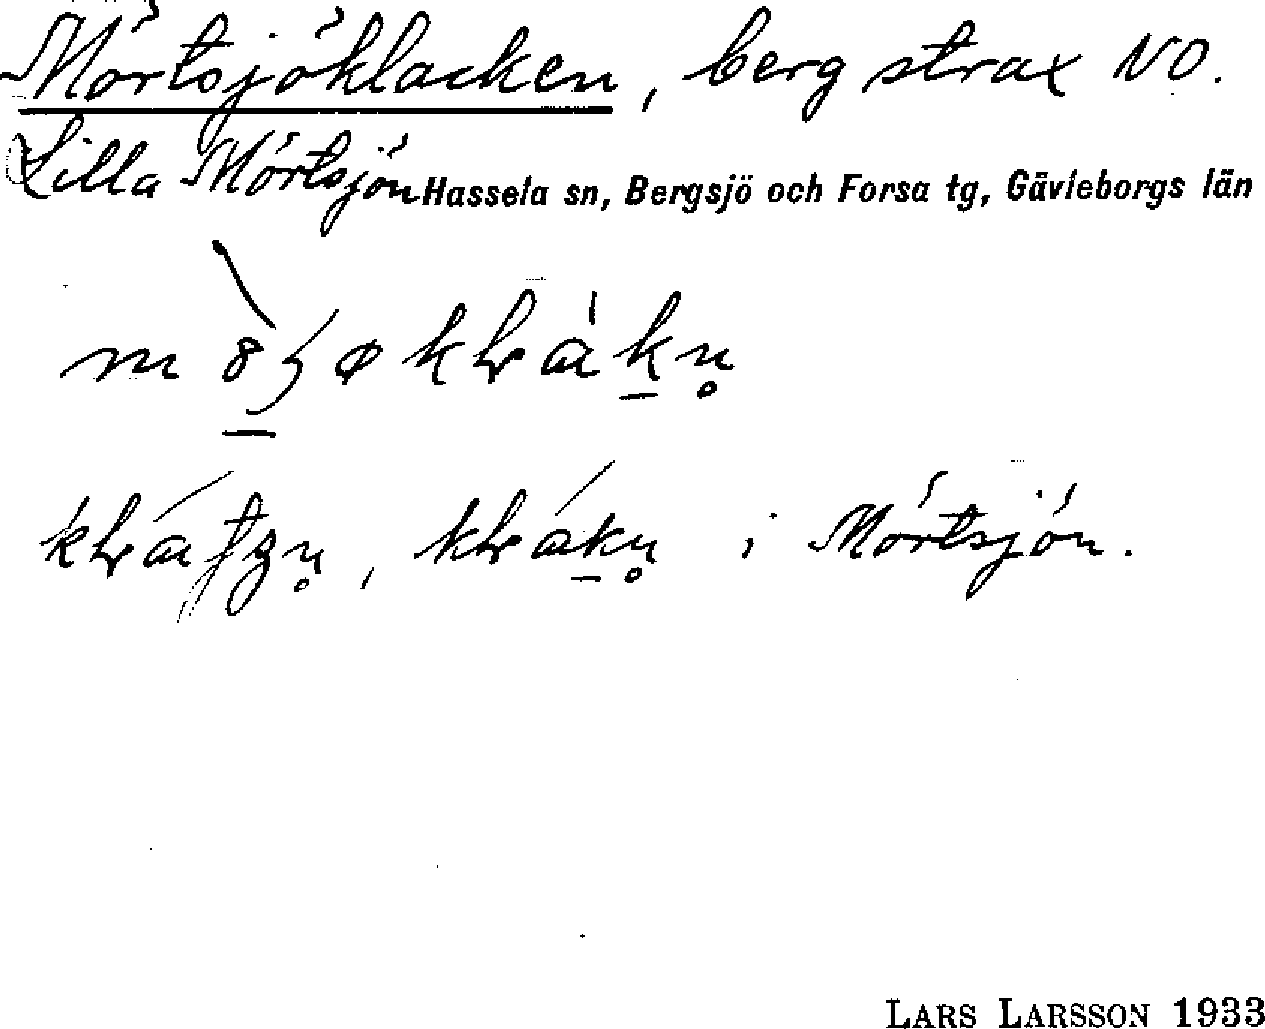 Mörtsjöklacken, berg strax NO.
Lilla Mörtsjön Hassela sn, Bergsjö och Forsa tg, Gävleborgs län
i Mörtsjön.
LARS LARSSON 1933